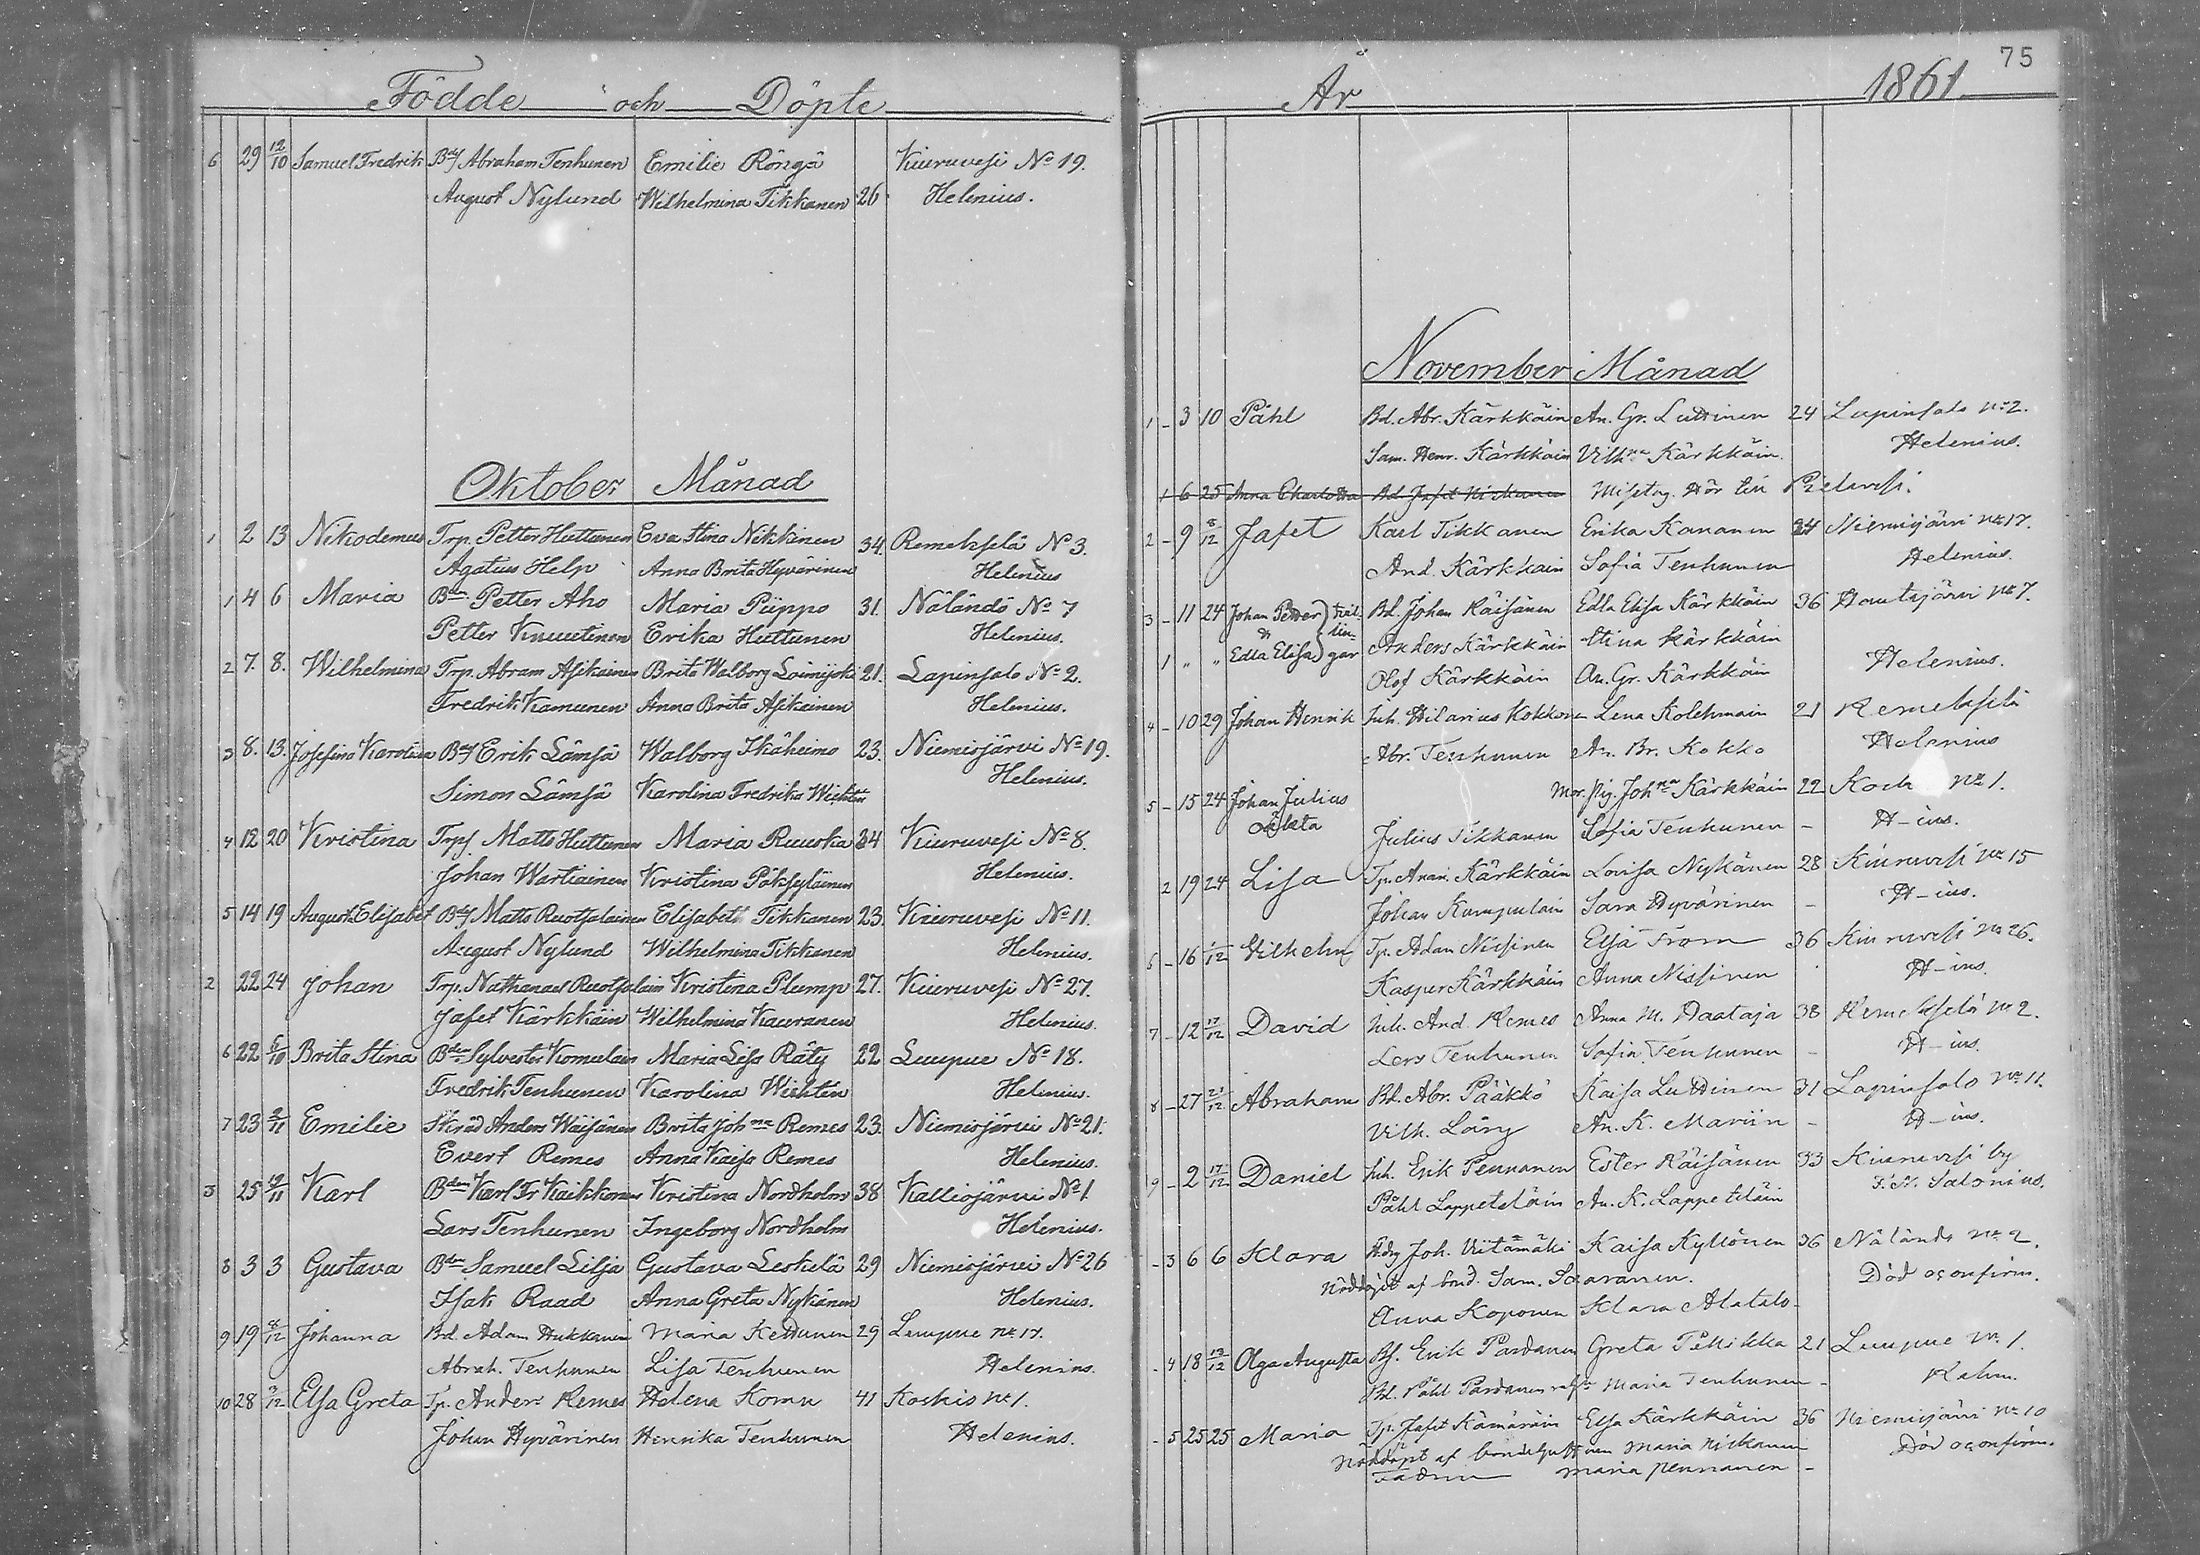 Födde och Döpte
6 29 12/10 Samuel Fredrik Bdsf Abraham Tenhunen Emilie Röngä Kiuruvesi No 19.
August Nylund Wilhelmina Tikkanen 26 Helenius.
Oktober Månad
1 2 13 Nikodemus Trp. Petter Huttunen Eva Stina Nikkinen 34. Remekselä No 3.
Agatius Help Anna Brita Hyvärinen Helenius
1 4 6 Maria Bdn Petter Aho Maria Piippo 31. Näländö No 7
Petter Knuutinen Erika Huttunen Helenius.
2 7. 8. Wilhelmina Trp. Abram Asikainen Brita Walborg 21. Lapinsalo No 2.
Fredrik Kamunen Anna Brita Asikainen Helenius.
3 8. 13. Josefina Karolina Bdsf Erik Lämsä Walborg Ikäheimo 23. Niemisjärvi No 19.
Simon Lämsä Karolina Fredrika Wichtén Helenius.
4 12 20 Kristina Trpsf Matts Huttunen Maria Ruuska 34 Kiuruvesi No 8.
Johan Wartiainen Kristina Pöksyläinen Helenius.
5 14 19 August Elisabet Bdsf Matts Ruotsalainen Elisabeth Tikkanen 23. Kiuruvesi No 11.
August Nylund Wilhelmina Tikkanen Helenius.
2 22 24 Johan Trp. Nathanael Ruotsalain Kristina Plump 27. Kiuruvesi No 27.
Jafet Kärkkäin Wilhelmina Kauranen Helenius.
6 22 5/10 Brita Stina Bdn Sylvester Komulain Maria Lisa Räty 22 Luupue No 18.
Fredrik Tenhunen Karolina Wichtén Helenius.
7 23 2/11 Emilie Skräd Anders Wäisänen Brita Johna Remes 23. Niemisjärvi No 21.
Evert Remes Anna Kaisa Remes Helenius.
3 25 19/11 Karl Bdn Karl Fr Kaikkonen Kristina Nordholm 38 Kalliojärvi No 1
Lars Tenhunen Ingeborg Nordholm Helenius.
8 3 3 Gustava Bdn Samuel Lilja Gustava Leskelä 29 Niemisjärvi No 26
Isak Raad Anna Greta Nykänen Helenius.
9 19 8/12 Johanna Bd. Adam Hukkanen Maria Kettunen 29 Luupue No 17.
Abrah. Tenhunen Lisa Tenhunen Helenius.
10 28 3/12 Elsa Greta Tp. Anders Remes Helena Komu 41 Koskis No 1.
Johan Hyvärinen Henrika Tenhunen Helenius.
75
År 1861
November Månad
1 - 3 10 Påhl Bd. Abr. Kärkkäin An. Gr. Luttinen 24 Lapinsalo No 2.
Sam. Henr. Kärkkäin Vilhna Kärkkäin. Helenius.
1 6 25 Anna Charlotta Bd Jafet Niskanen Misstag. Hör till Pielavesi.
2 - 9 8/12 Jafet Karl Tikkanen Erika Kananen 24 Niemisjärvi No 17.
And. Kärkkäin Sofia Tenhunen Helenius.
3 - 11 24 Johan Petter tvil- Bd. Johan Räisänen Edla Elisa Kärkkäin 36 Hautajärvi No 7.
& lin- Anders Kärkkäin Stina Kärkkäin
1 " " Edla Elisa gar Olof Kärkkäin An. Gr. Kärkkäin Helenius.
4 - 10 29 Johan Henrik Inh. Hilarius Kokkon Lena Kolehmain 21 Remekselä
Abr. Tenhunen An. Br. Kokko Helenius
5 - 15 24 Johan Julius Mor. Pig. Johna Kärkkäin 22 No 1.
oäkta Julius Tikkanen Sofia Tenhunen - H-ius.
2 19 24 Lisa Tp. Anan. Kärkkäin Lovisa Nykänen 28 Kiuruvesi No 15
Johan Kumpulain Sara Hyvärinen - H-ius.
6 - 16 1/12 Vilhelm Tp. Adam Nissinen Elsa From 36 Kiuruvesi No 26.
Kasper Kärkkäin Anna Nissinen H-ius.
7 - 12 17/12 David Inh. And. Remes Anna M. Daataja 38 Remekselä No 2.
Lars Tenhunen Sofia Tenhunen - H-ius.
8 - 27 21/12 Abraham Bd. Abr. Pääkkö Kaisa Luttinen 31 Lapinsalo No 11.
Vilh. Lång An. K. Mariin - H-ius.
9 - 2 17/12 Daniel Inh. Erik Pennanen Ester Räisänen 33 Kiuruvesi by
Påhl Lappeteläin An. K. Lappeteläin F. N. Salonius.
- 3 6 6 Klara Joh. Viitamäki Kaisa Kyllönen 36 Näländö No 2.
Nöddöpt af bond. Sam. Saaranen. Död oconfirm.
Anna Koponen Klara Alatalo -
- 4 18 13/12 Olga Augusta Bf. Erik Pardanen Greta Pellikka 21 Luupue No 1.
Bd. Påhl Pardanen Maria Tenhunen - Rahm.
- 5 25 25 Maria Tp. Jafet Kämäräin Elsa Kärkkäin 36 Niemisjärvi No 10
Nöddöpt af bondehustrun Maria Niskanen Död oconfirm.
Fadrar Maria Pennanen -